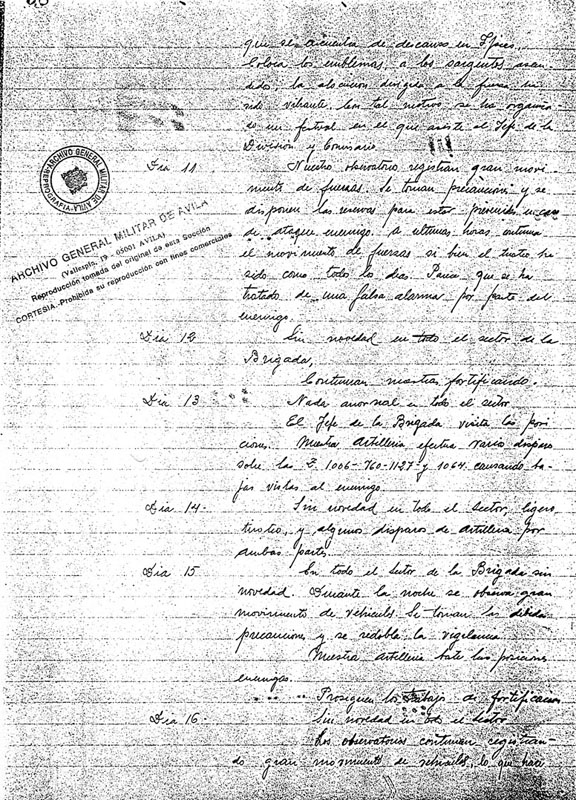 que se encuentra de descanso en
Coloca los emblemas a los sargentos
la alocucion dirigida a la fuerza
vibrante. Con tal motivo se ha
un festival en el que asiste el Jefe de la
Division y Comisario.
Dia 11 Nuestro observatorio registran gran movi-
miento de fuerzas. Se toman precaución y se
disponen las reservas para estar
de ataque enemigo. A ultimas horas continua
el movimiento de fuerzas si bien el tiroteo ha
sido como todo los dias. Parece que se ha
tratado de una falsa alarma por parte del
enemigo.
Dia 12 Sin novedad en todo el sector de la
Brigada.
Continuan fortificando.
Dia 13 Nada anormal en todo el sector
El Jefe de la Brigada visita las posi-
ciones. Nuestra Artilleria efectua varios disparos
sobre las Z. 1006-760-1127 y 1064 causando ba-
jas vistas al enemigo
Dia 14- Sin novedad en todo el sector, ligero
tiroteo, y algunos disparos de artilleria por
ambas partes
Dia 15 En todo el sector de la Brigada sin
novedad. Durante la noche se observa gran
movimiento de vehiculos. Se toman las debidas
precauciones y se redobla la vigilancia
Nuestra artilleria bate las posiciones
enemigas.
Prosiguen los trabajos de fortificacion
Dia 16- Sin novedad en todo el sector
Los observatorios continuan registran-
do gran movimiento de vehiculos, lo que hace
ARCHIVO GENERAL MILITAR DE AVILA
REPROGRAFIA
ARCHIVO GENERAL MILITAR DE AVILA
(Vallespín, 19 - 05001 AVILA)
Reproducción tomada del original de esta Sección
CORTESIA.-Prohibida su reproducción con fines comerciales